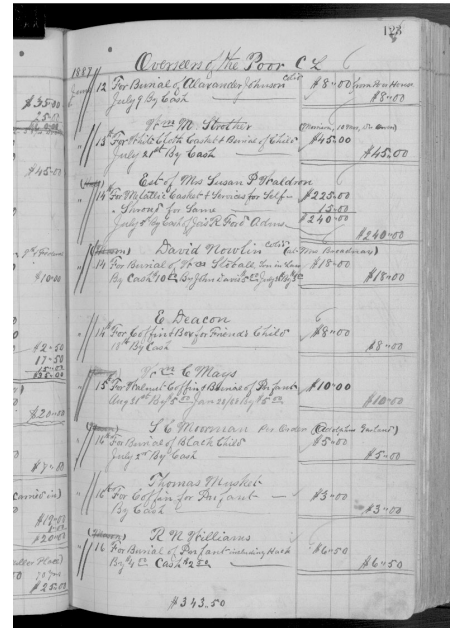 123
Overseers of the Poor
1887
June 12 For Burial of Alexander Johnson Cold $8.00 from Poor House
July 9 By Cash $8.00
Wm M. Strother
13th For White Cloth Casket & Burial of Child $45.00
July 21st By Cash $45.00
Est of Mrs Susan P Waldron
14th For Metallic Casket & Services for Self $225.00
" Shroud for Same 15.00
$240.00
July By Cash of Jas R Ford Admr $240.00
David Nowlin Cold
14 For Burial of Wm Stovall Son in Law $18.00
By Cash 10 By John Davis 5 July $18.00
E Deacon
14th For Coffin & Box for Friend's Child $8.00
18th By Cash $8.00
Wm C Mays
15 For Walnut Coffin & Burial of Infant $10.00
Aug 31st By $5 Jan By $5 $10.00
S C Moorman Per Order (Adolphus Garland)
16th For Burial of Black Child $5.00
July 2nd By Cash $5.00
Thomas Musket
16th For Coffin for Infant $3.00
By Cash $3.00
R N Williams
16 For Burial of Infant including Hack $6.50
By 4 Cash $2.50 $6.50
$343.50
$35.00
25.00
$45.00
$10.00
$2.50
17.50
15.00
$35.00
$20.00
$7.00
Carried in)
$19.00
1.00
$20.00
$25.00